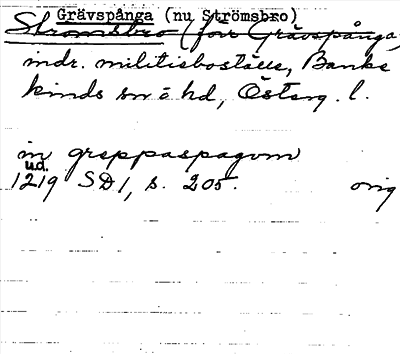 Grävspånga (nu Strömsbro)
Strömsbro (förr Grävspånga)
indr. militieboställe, Banke
kinds sn o hd, Österg. l.
in greppaspagum
u.d.
1219 SD 1, s. 205. orig